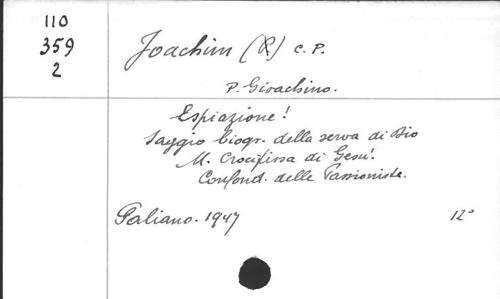 110
359
2
Joachim (R) C. P.
P. Gioachino.
Espiazione!
Saggio biogr. della serva di Dio
M. Crocifissa di Gesù.
Confond. delle Passioniste.
Paliano. 1947
12°